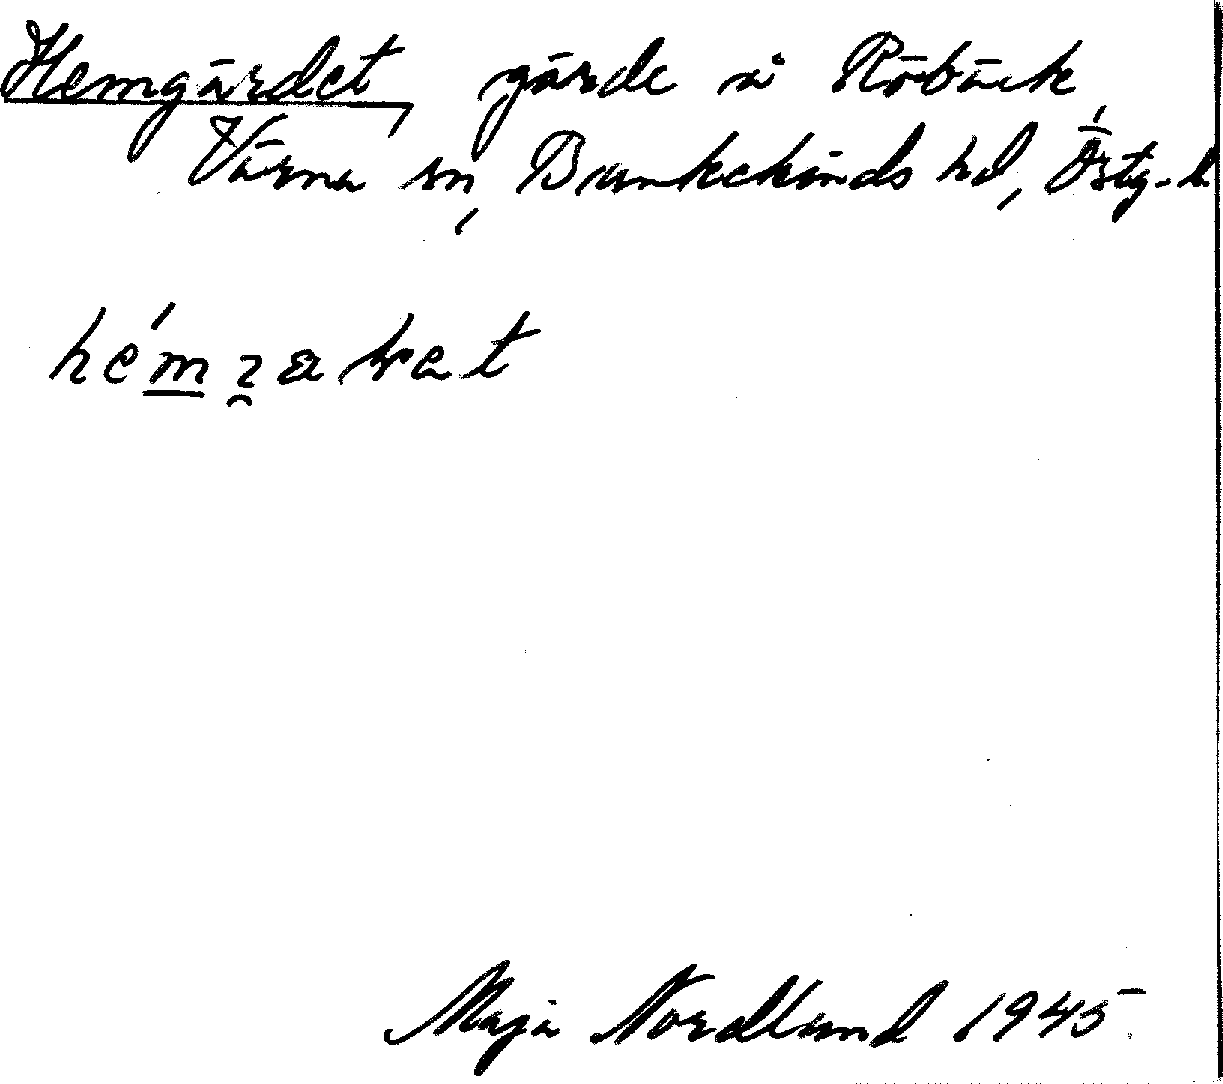 Hemgärdet, gärde å Röbäck,
Värna sn, Bankekinds hd, Östg. l.
Maja Nordlund 1945.